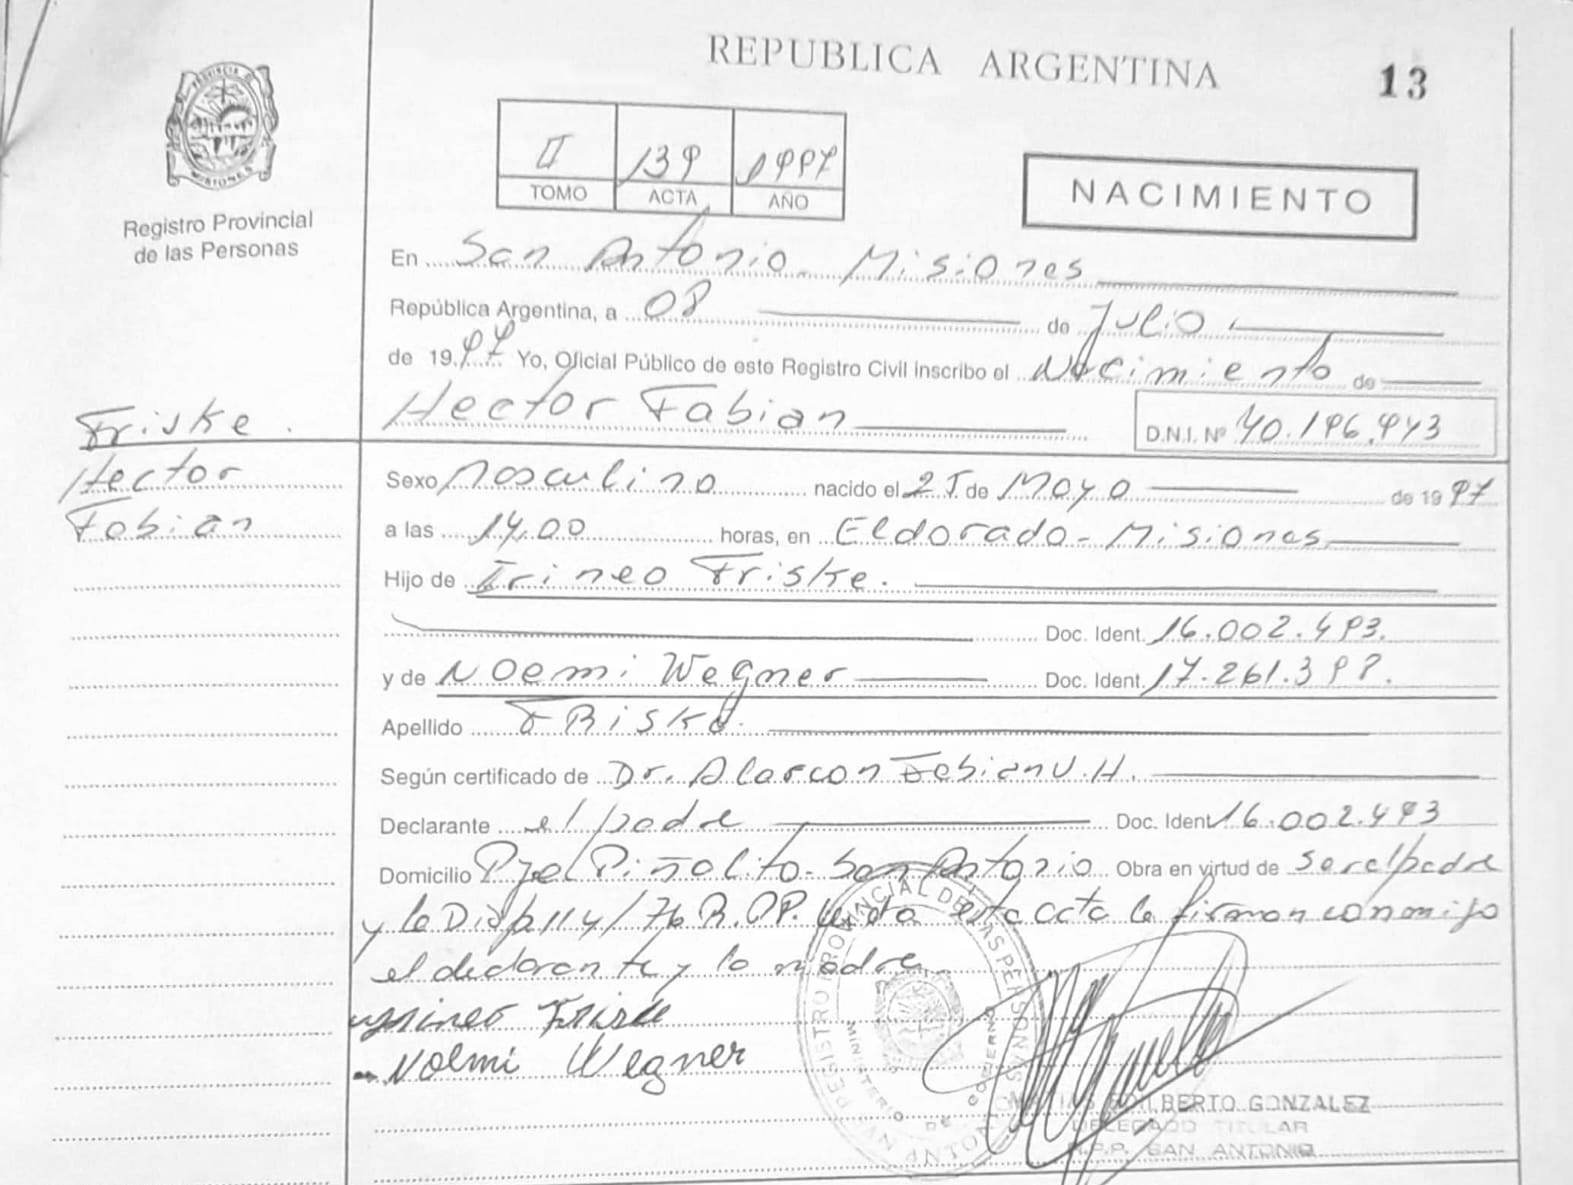 REPUBLICA ARGENTINA
13
PROVINCIA DE MISIONES
Registro Provincial
de las Personas
II 139 1997
TOMO ACTA AÑO
NACIMIENTO
En San Antonio Misiones
República Argentina, a 08 de Julio
de 1997 Yo, Oficial Público de este Registro Civil inscribo el Nacimiento de
Hector Fabian D.N.I. Nº 40.196.943
Friske
Hector
Fabian
Sexo Masculino nacido el 25 de Mayo de 1997
a las 14.00 horas, en Eldorado - Misiones
Hijo de Irineo Friske.
Doc. Ident. 16.002.493.
y de Noemi Wegner Doc. Ident. 17.261.398.
Apellido FRiske.
Según certificado de Dr. Alarcon Fabian V.H.
Declarante el padre Doc. Ident 16.002.493
Domicilio Pje Piñalito - San Antonio Obra en virtud de ser el padre
y la Disp 114/76 R.P.P. Leída esta acta la firman conmigo
el declarante y la madre.
Irineo Friske
Noemi Wegner
REGISTRO PROVINCIAL DE LAS PERSONAS
MINISTERIO DE GOBIERNO
SAN ANTONIO
ALBERTO GONZALEZ
DELEGADO TITULAR
R.P.P. SAN ANTONIO